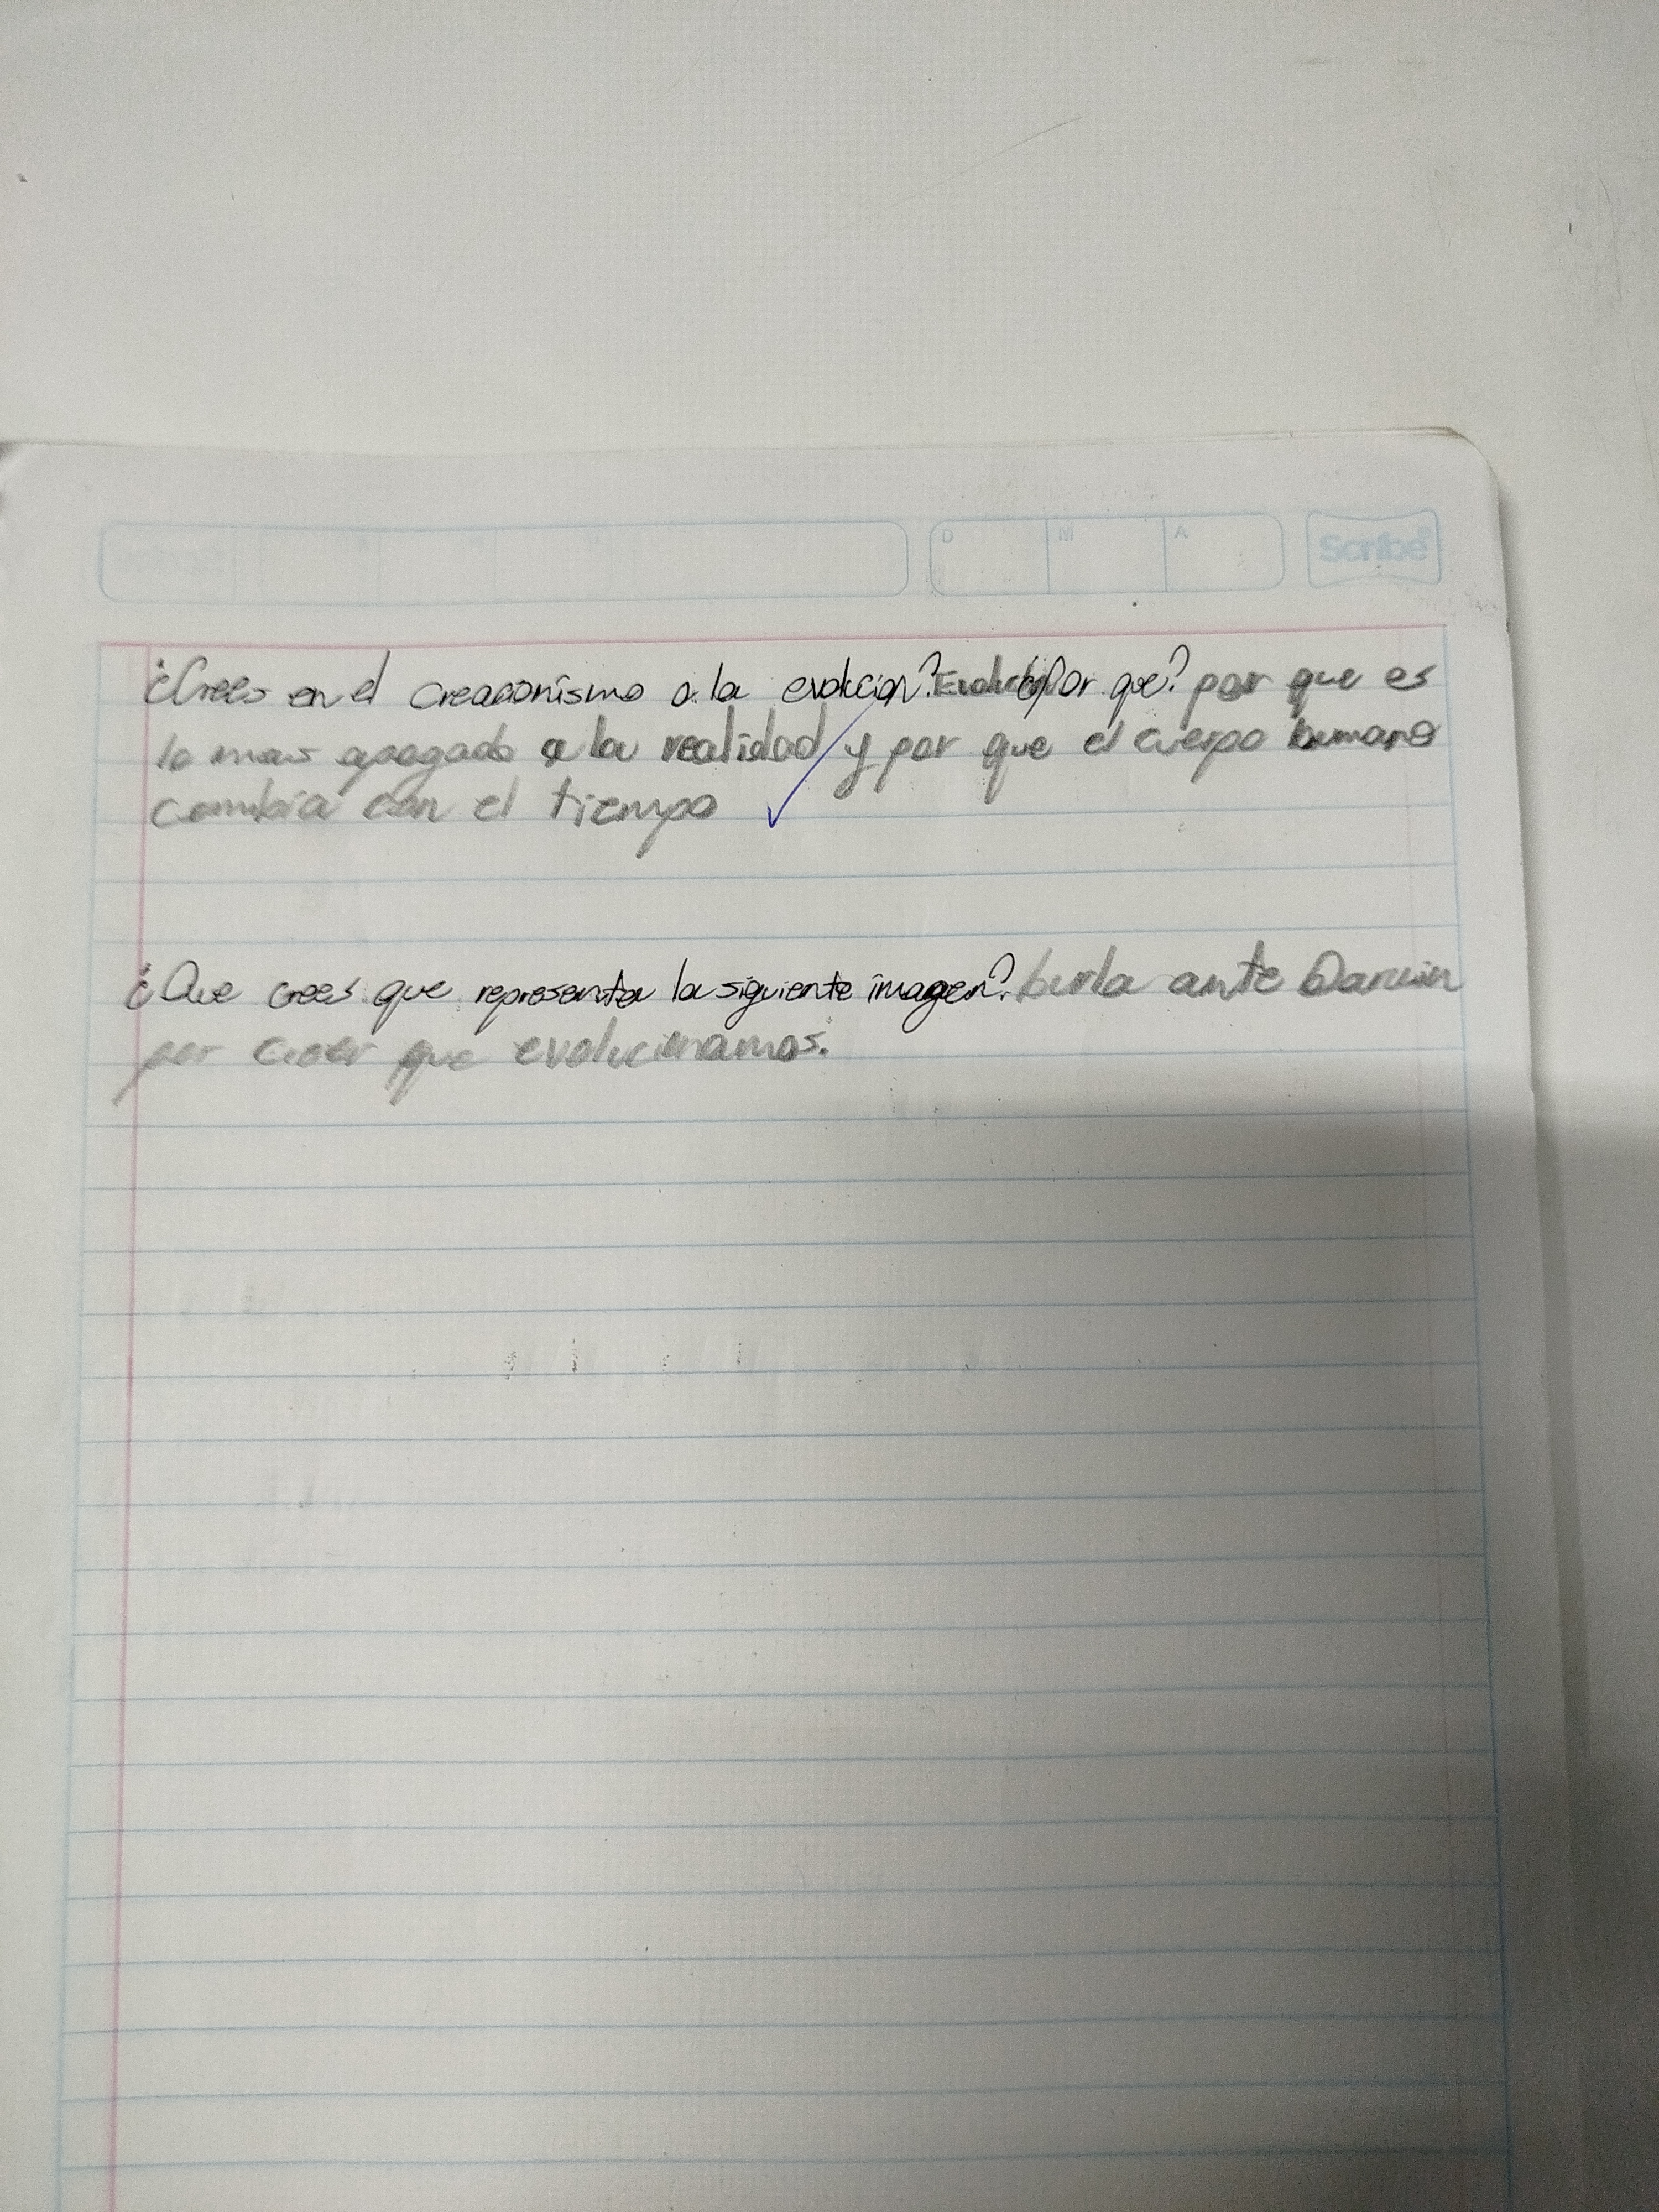 D M A Scribe
¿Crees en el creacionismo o la evolucion? Evolución ¿Por que? por que es
lo mas apegado a la realidad y por que el cuerpo humano
cambia con el tiempo
¿Que crees que representa la siguiente imagen? burla ante Darwin
por creer que evolucionamos.